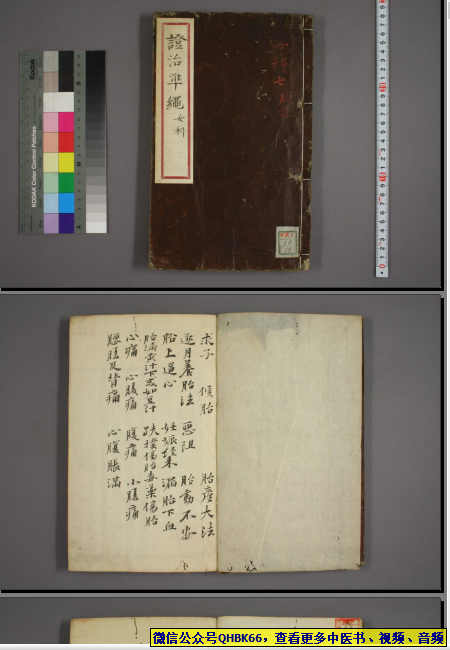 證治準繩 女科
Kodak
KODAK Color Control Patches
求子 候胎 胎產大法
逐月養胎法 惡阻 胎動不安
胎上逼心 妊娠經來 漏胎下血
胎漏黃汁下或如豆汁 跌撲傷胎毒藥傷胎
心痛 心腹痛 腹痛 小腹痛
腰腹及背痛 心腹脹滿
微信公众号QHBK66，查看更多中医书、视频、音频